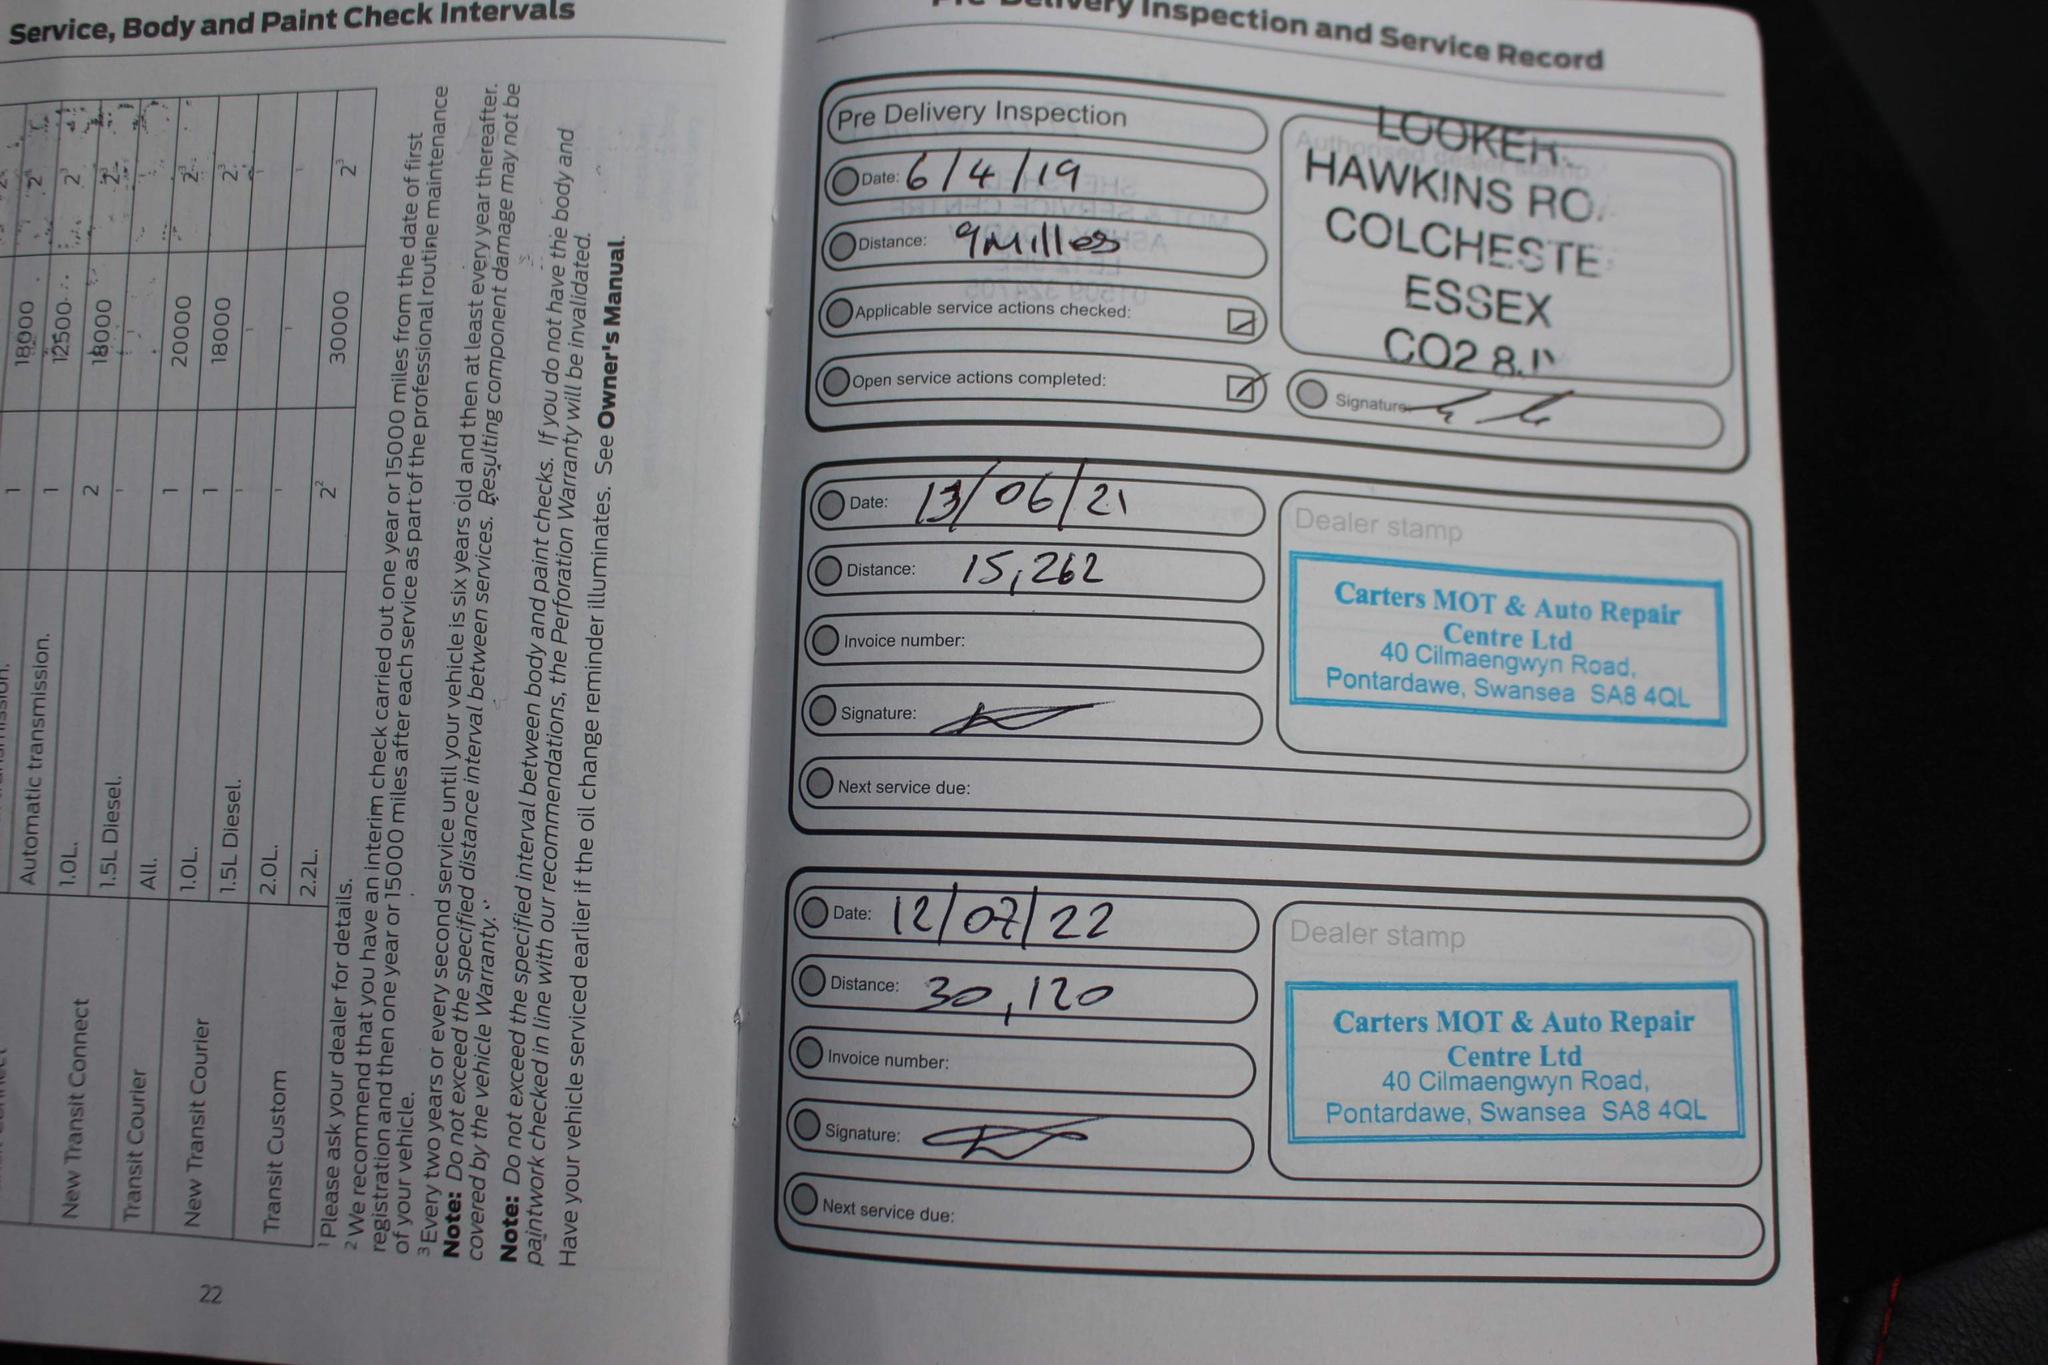 Service, Body and Paint Check Intervals
18000 2³
Automatic transmission. 1 12500 2³
New Transit Connect 1.0L. 1 18000 2³
1.5L Diesel. 2
Transit Courier All. -
New Transit Courier 1.0L. 1 20000 2³
1.5L Diesel. 1 18000 2³
Transit Custom 2.0L. - - -
2.2L. - - -
2² 30000 2³
¹ Please ask your dealer for details.
² We recommend that you have an interim check carried out one year or 15000 miles from the date of first
registration and then one year or 15000 miles after each service as part of the professional routine maintenance
of your vehicle.
³ Every two years or every second service until your vehicle is six years old and then at least every year thereafter.
Note: Do not exceed the specified distance interval between services. Resulting component damage may not be
covered by the vehicle Warranty.
Note: Do not exceed the specified interval between body and paint checks. If you do not have the body and
paintwork checked in line with our recommendations, the Perforation Warranty will be invalidated.
Have your vehicle serviced earlier if the oil change reminder illuminates. See Owner's Manual.
22
Delivery Inspection and Service Record
Pre Delivery Inspection
Date: 6/4/19
Distance: 9 Milles
Applicable service actions checked:
Open service actions completed:
Authorised dealer stamp
LOOKER
HAWKINS RO
COLCHESTE
ESSEX
CO2 8
Signature:
Date: 13/06/21
Distance: 15,262
Invoice number:
Signature:
Next service due:
Dealer stamp
Carters MOT & Auto Repair
Centre Ltd
40 Cilmaengwyn Road,
Pontardawe, Swansea SA8 4QL
Date: 12/07/22
Distance: 30,120
Invoice number:
Signature:
Next service due:
Dealer stamp
Carters MOT & Auto Repair
Centre Ltd
40 Cilmaengwyn Road,
Pontardawe, Swansea SA8 4QL